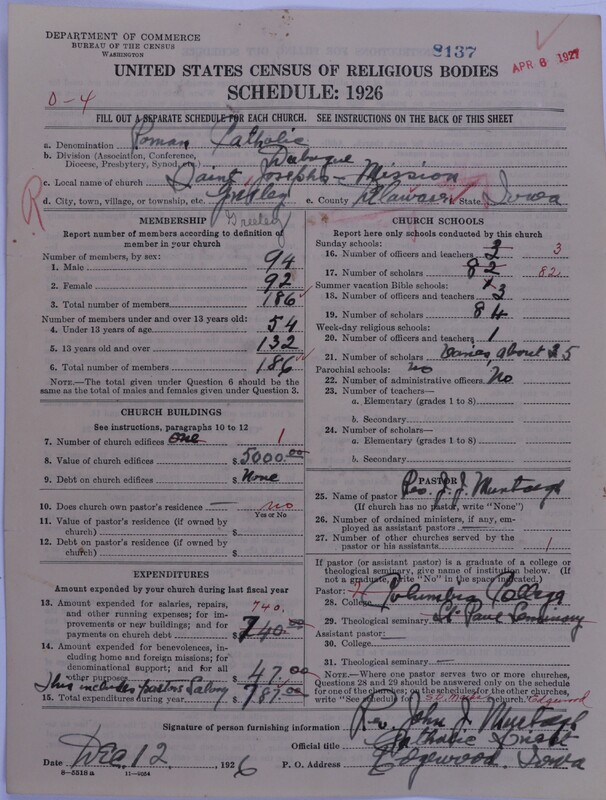 DEPARTMENT OF COMMERCE
BUREAU OF THE CENSUS
WASHINGTON
8137
APR 6 1927
UNITED STATES CENSUS OF RELIGIOUS BODIES
SCHEDULE: 1926
O-4
FILL OUT A SEPARATE SCHEDULE FOR EACH CHURCH. SEE INSTRUCTIONS ON THE BACK OF THIS SHEET
a. Denomination Roman Catholic
b. Division (Association, Conference,
Diocese, Presbytery, Synod, etc.) Dubuque
c. Local name of church Saint Josephs - Mission
d. City, town, village, or township, etc. Greeley e. County Delaware State Iowa
R
Greeley
MEMBERSHIP
Report number of members according to definition of
member in your church
Number of members, by sex:
1. Male 94
2. Female 92
3. Total number of members 186
Number of members under and over 13 years old:
4. Under 13 years of age 54
5. 13 years old and over 132
6. Total number of members 186
NOTE.—The total given under Question 6 should be
the same as the total of males and females given under Question 3.
CHURCH BUILDINGS
See instructions, paragraphs 10 to 12
7. Number of church edifices one 1
8. Value of church edifices $ 5000.00
9. Debt on church edifices $ None
10. Does church own pastor's residence — no
Yes or No
11. Value of pastor's residence (if owned by
church) $
12. Debt on pastor's residence (if owned by
church) $
EXPENDITURES
Amount expended by your church during last fiscal year
13. Amount expended for salaries, repairs,
and other running expenses; for im-
provements or new buildings; and for
payments on church debt $ 740.00
740.
14. Amount expended for benevolences,
including home and foreign missions; for
denominational support; and for all
other purposes 47.00
This includes pastors Salary
15. Total expenditures during year $ 787.00
CHURCH SCHOOLS
Report here only schools conducted by this church
Sunday schools:
16. Number of officers and teachers 3 3
17. Number of scholars 82 82
Summer vacation Bible schools:
18. Number of officers and teachers 3
19. Number of scholars 84
Week-day religious schools:
20. Number of officers and teachers 1
21. Number of scholars Varies, about 25
Parochial schools: no
22. Number of administrative officers No
23. Number of teachers—
a. Elementary (grades 1 to 8)
b. Secondary
24. Number of scholars—
a. Elementary (grades 1 to 8)
b. Secondary
PASTOR
25. Name of pastor Rev. J. J. Murtagh
(If church has no pastor, write "None")
26. Number of ordained ministers, if any, em-
ployed as assistant pastors
27. Number of other churches served by the
pastor or his assistants 1
If pastor (or assistant pastor) is a graduate of a college or
theological seminary, give name of institution below. (If
not a graduate, write "No" in the space indicated.)
Pastor:
28. College Columbia College
29. Theological seminary St Paul Seminary
Assistant pastor:
30. College
31. Theological seminary —
NOTE.—Where one pastor serves two or more churches,
Questions 28 and 29 should be answered only on the schedule
for one of the churches; on the schedules for the other churches,
write "See schedule for Edgewood
Signature of person furnishing information Rev. John J. Murtagh
Official title Catholic Priest
Date Dec. 12, 1926 P. O. Address Edgewood. Iowa
8-5518 a 11-9034